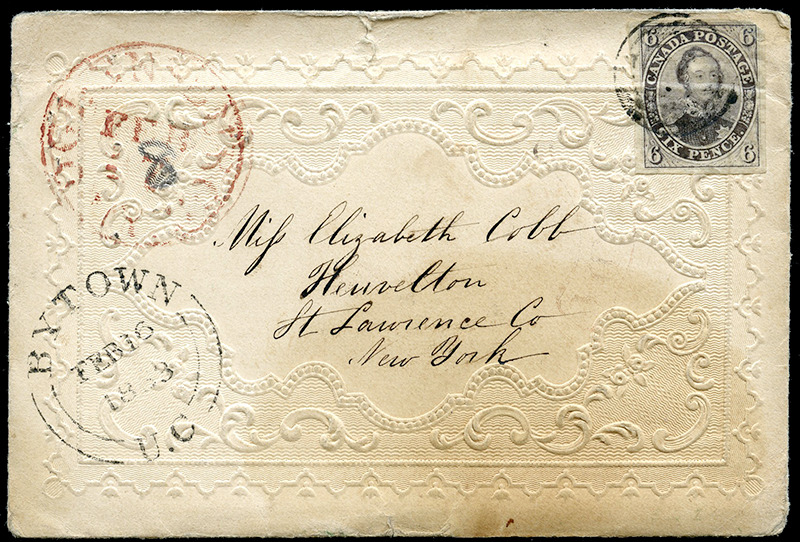 6 CANADA POSTAGE 6
6 SIX PENCE 6
FEB
Miſs Elizabeth Cobb
Heuvelton
St Lawrence Co
New York
BYTOWN
FEB 18
U.C